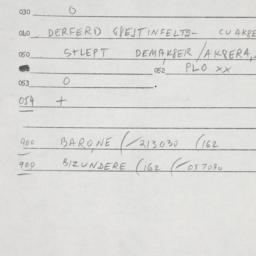 030 0
040 DERFERD GPESTINFELTS- CUAKPER
050 S+LEPT DEMAKPER / AKPERA,
052 PLO xx
053 0 .
054 +
900 BARONE (/213030 (162
900 BIZUNDERE (162 (/057030